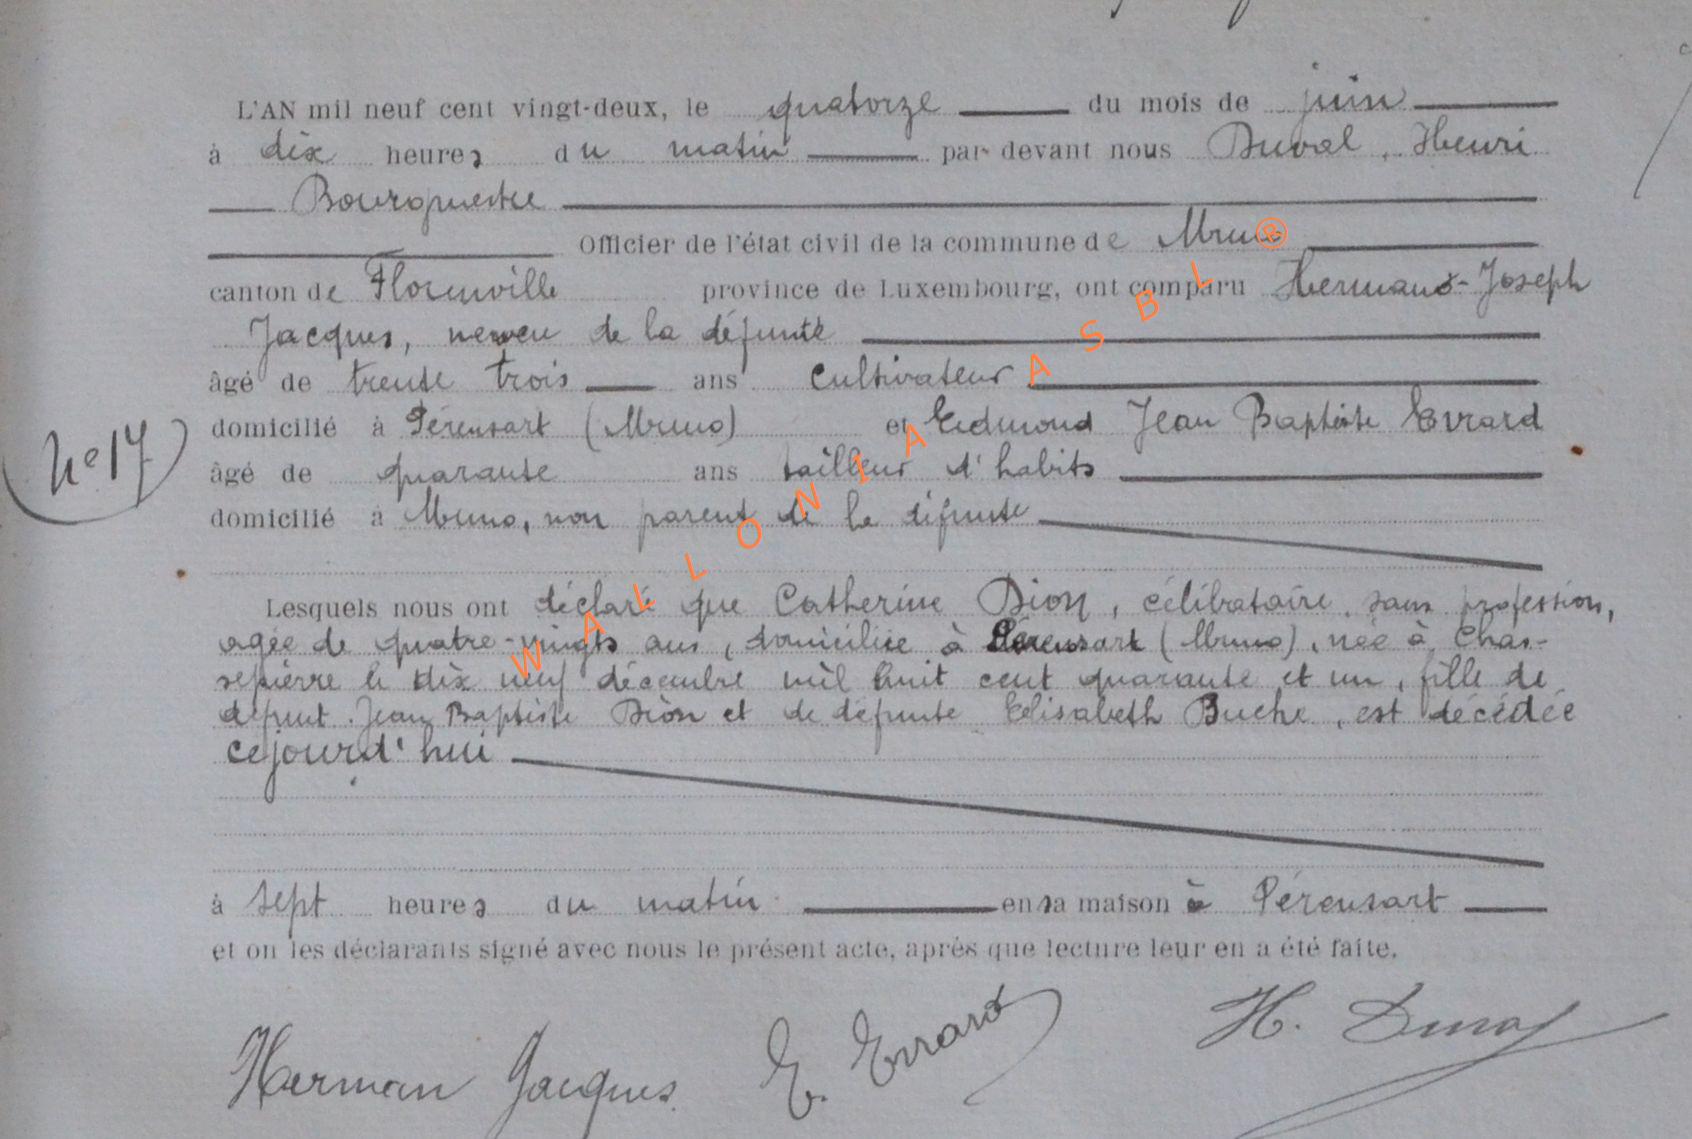 L'AN mil neuf cent vingt-deux, le quatorze du mois de juin
à dix heures du matin par devant nous Duval, Henri
Bourgmestre
Officier de l'état civil de la commune de Muno
canton de Florenville province de Luxembourg, ont comparu Hermand-Joseph
Jacques, neveu de la défunte
âgé de trente trois ans cultivateur
domicilié à Pérensart (Muno) et Edmond Jean Baptiste Evrard
âgé de quarante ans tailleur d'habits
domicilié à Muno, non parent de la défunte
N° 17
Lesquels nous ont déclaré que Catherine Dion, célibataire, sans profession,
agée de quatre-vingts ans, domiciliée à Pérensart (Muno), née à Chas-
sepierre le dix neuf décembre mil huit cent quarante et un, fille de
défunt Jean Baptiste Dion et de défunte Elisabeth Buche, est décédée
cejourd'hui
à sept heures du matin en sa maison à Pérensart
et on les déclarants signé avec nous le présent acte, après que lecture leur en a été faite.
Herman Jacques E. Evrard H. Duval
WALLONIA ASBL ®